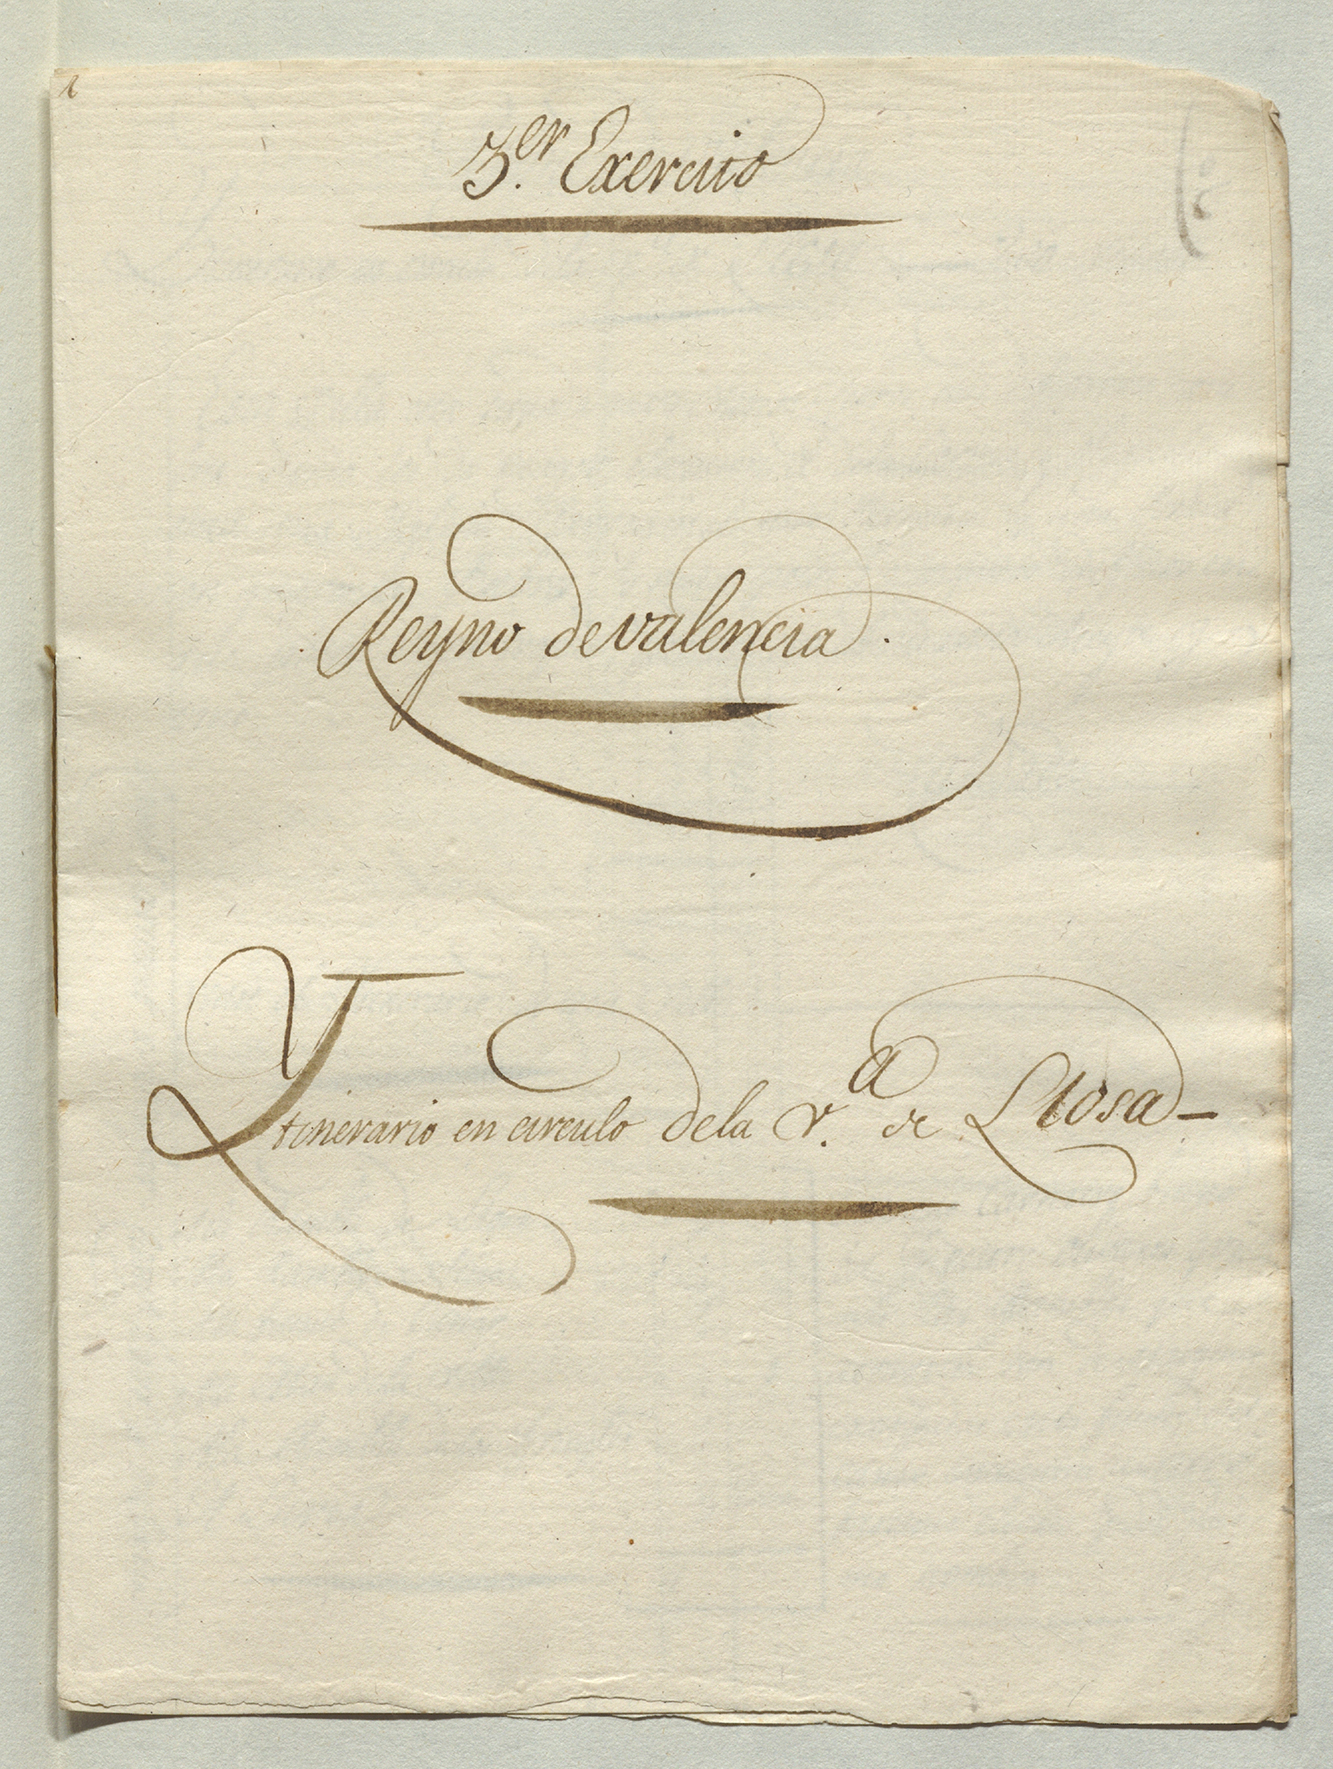 3.er Exercito
Reyno de valencia.
Ytinerario en circulo dela V.a de Llosa